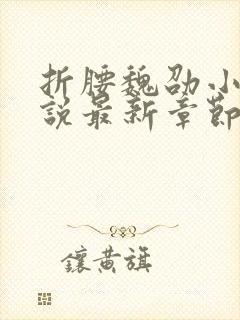 折腰魏劭小
說最新章節
鑲黃旗